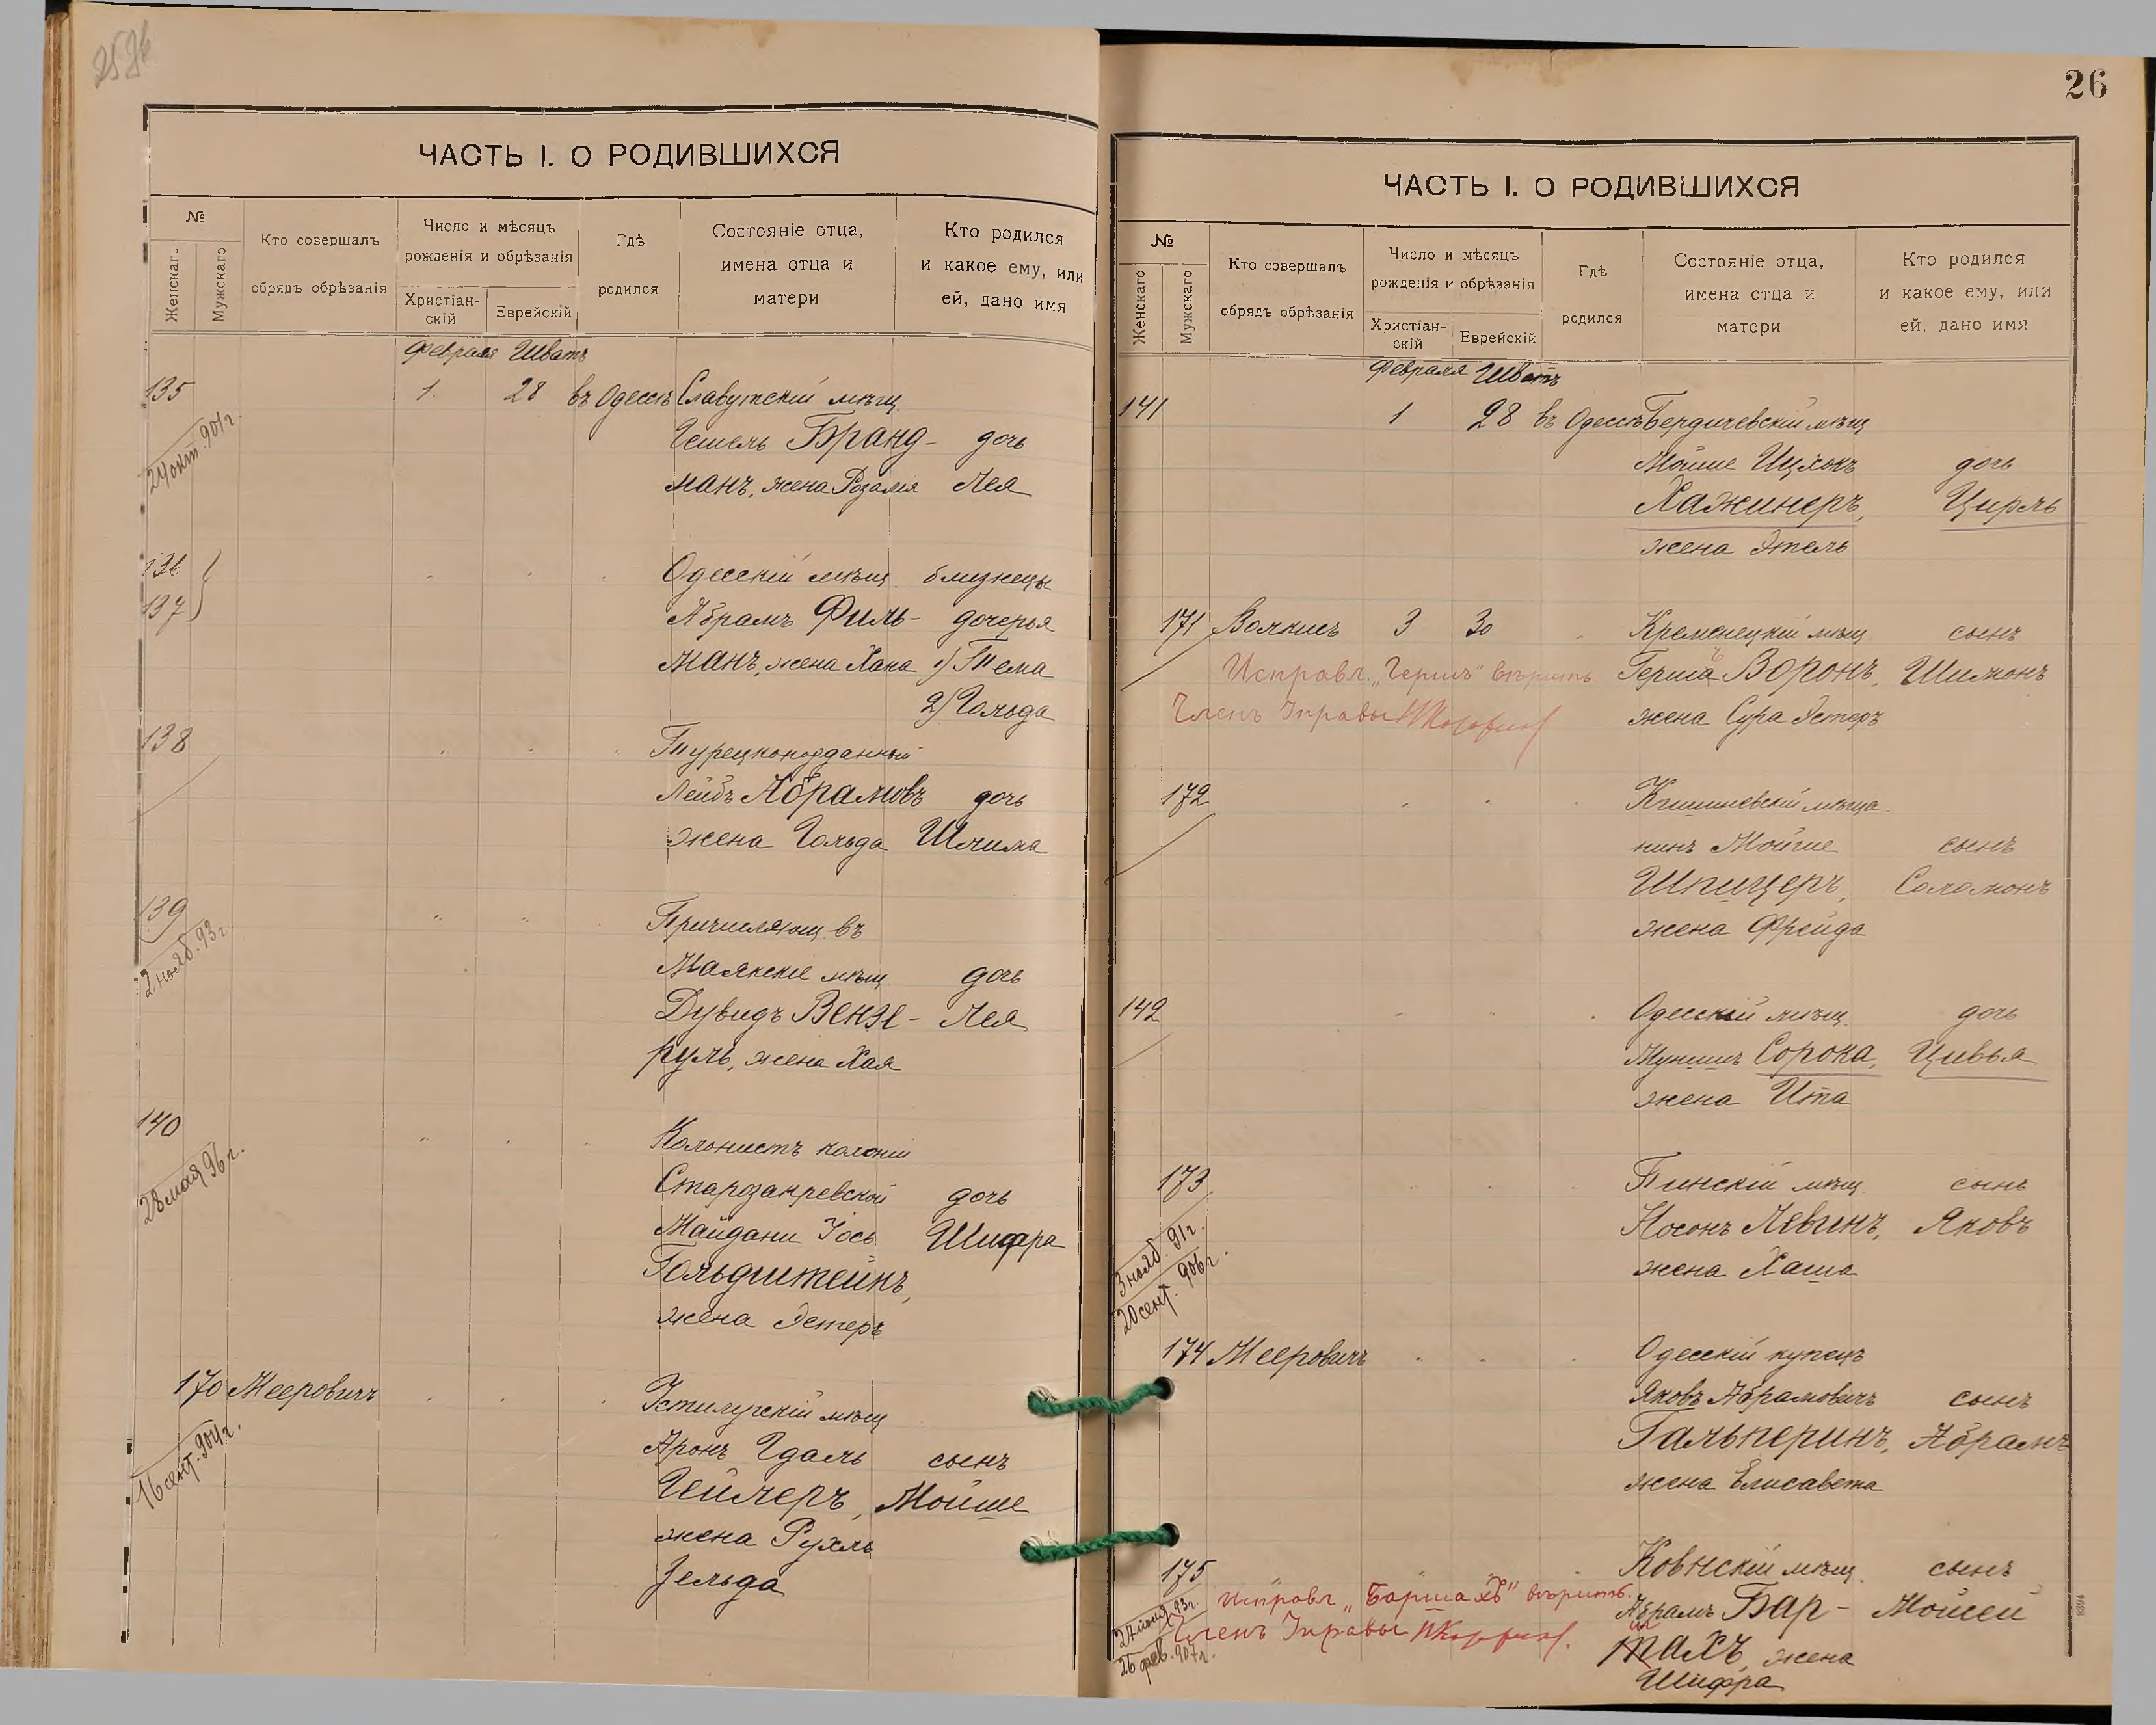 ЧАСТЬ I. О РОДИВШИХСЯ
№
Женскаг.
Мужскаго
Кто совершалъ
обрядъ обрѣзанія
Число и мѣсяцъ
рожденія и обрѣзанія
Христіан-
скій
Еврейскій
Гдѣ
родился
Состояніе отца,
имена отца и
матери
Кто родился
и какое ему, или
ей, дано имя
Февраля Шватъ
135 1. 28 въ Одессѣ Славутскій мѣщ.
24 окт. 901 г.
Гешель Бранд- дочь
манъ, жена Розалія Лея
136 Одесскій мѣщ. близнецы
137 Абрамъ Филь- дочерья
манъ, жена Хана 1) Тема
2) Гольда
138 Турецкоподданный
Лейбъ Абрамовъ дочь
жена Гольда Шлима
139 Причисляющ. въ
2 нояб. 93 г.
Маякскіе мѣщ дочь
Дувидъ Вензе- Лея
руль, жена Хая
140 Колонистъ колоніи
28 мая 96 г.
Старозакревской дочь
Майдани Іось Шифра
Гольдштейнъ,
жена Эстеръ
170 Мееровичъ Устилугскій мѣщ
16 сент. 904 г.
Аронъ Гдаль сынъ
Гейлеръ, Мойше
жена Рухль
Зельда
26
ЧАСТЬ I. О РОДИВШИХСЯ
№
Женскаго
Мужскаго
Кто совершалъ
обрядъ обрѣзанія
Число и мѣсяцъ
рожденія и обрѣзанія
Христіан-
скій
Еврейскій
Гдѣ
родился
Состояніе отца,
имена отца и
матери
Кто родился
и какое ему, или
ей, дано имя
Февраля Шватъ
141 1 28 въ Одессѣ Бердичевскій мѣщ
Мойше Ицхокъ дочь
Хажинеръ, Цирль
жена Этель
171 Волкисъ 3 30 Кременецкій мѣщ сынъ
Исправл. „Гершъ" вѣрить Герша Воронъ, Шимонъ
Членъ Управы жена Сура Эстеръ
172 Кишиневскій мѣща-
нинъ Мойше сынъ
Шпицеръ, Соломонъ
жена Фрейда
142 Одесскій мѣщ. дочь
Мунишъ Сорока, Цивья
жена Ита
173 Пинскій мѣщ. сынъ
Носонъ Левинъ, Яковъ
3 нояб. 91 г.
жена Хаша
20 сент. 906 г.
174 Мееровичъ Одесскій купецъ
Яковъ Абрамовичъ сынъ
Гальперинъ, Абрамъ
жена Елисавета
175 Ковнскій мѣщ. сынъ
27 іюня 93 г.
Исправл „Баршахъ" вѣрить. Абрамъ Бар- Мойсей
Членъ Управы
26 фев. 907 г.
тахъ, жена
Шифра